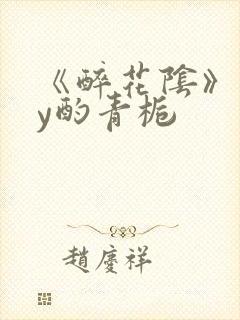 《醉花陰》
y酌青梔
趙慶祥